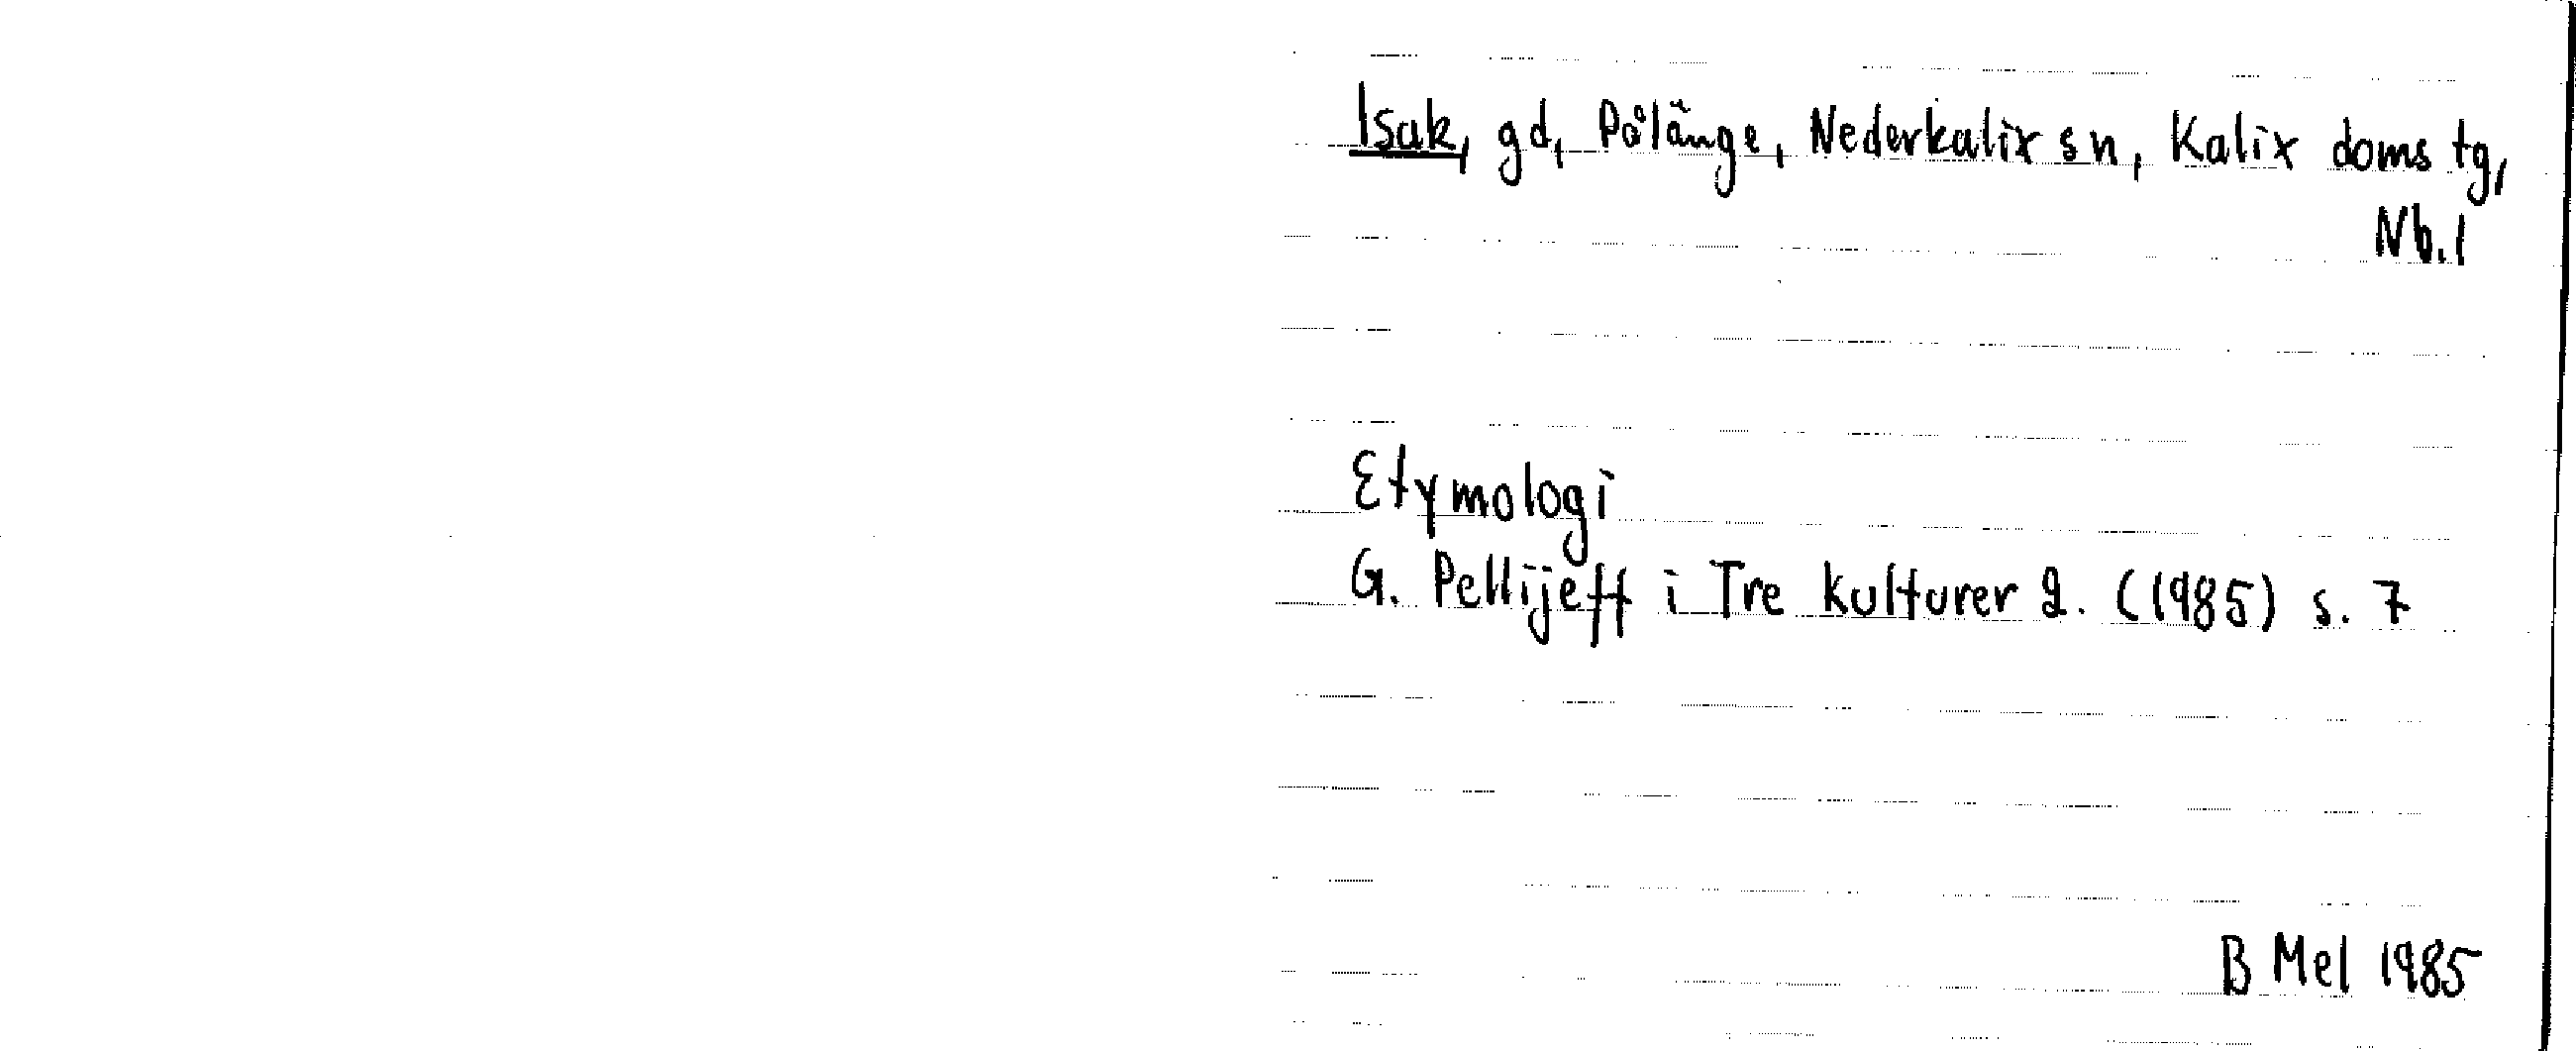 Isak, gd, Pålänge, Nederkalix sn, Kalix doms tg,
Nb. l
Etymologi
G. Pellijeff i Tre kulturer 2. (1985) s. 7
B Mel 1985